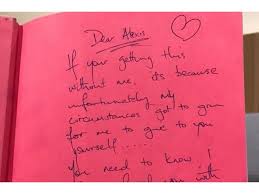 Dear Alexis
If your getting this
without me, its because
unfortunately my
circumstances got to
for me to give to you
yourself.....
you need to know
with